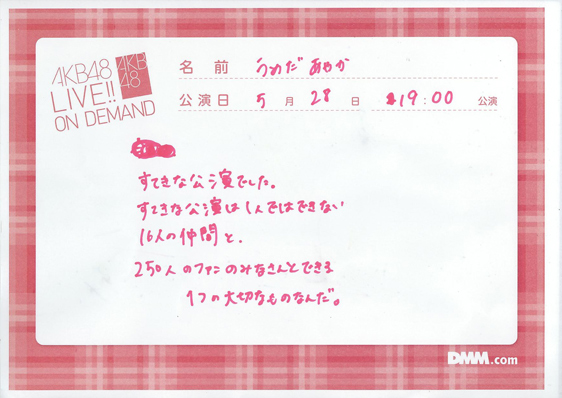 AKB48
LIVE!!
ON DEMAND
AKB
48
名 前 うめだ あやか
公演日 5 月 28 日 19:00 公演
すてきな公演でした。
すてきな公演は1人ではできない
16人の仲間と、
250人のファンのみなさんとできる
1つの大切なものなんだ。
DMM.com